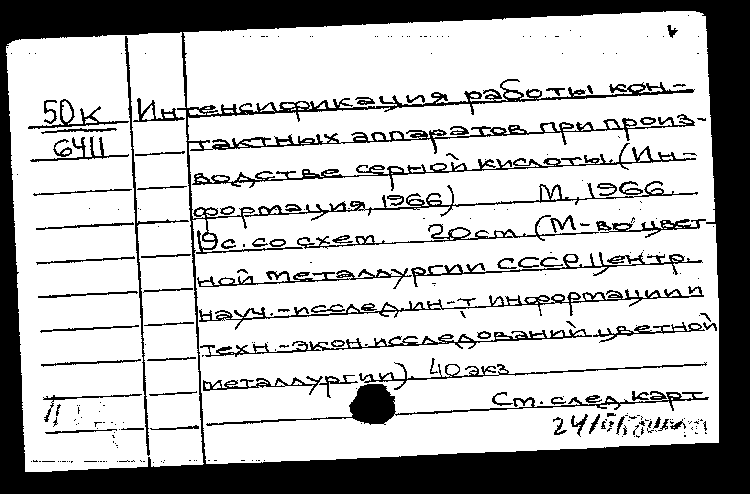 50к Интенсификация работы кон-
6411 тактных аппаратов при произ-
водстве серной кислоты. (Ин-
формация, 1966) М., 1966.
19с. со схем. 20см. (М-во цвет-
ной металлургии СССР. Центр.
науч.-исслед. ин-т информации и
техн.-экон. исследований цветной
металлургии). 40экз
См. след. карт